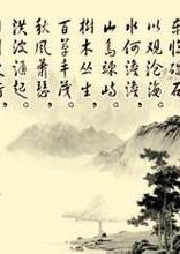 东临碣石，
以观沧海。
水何澹澹，
山岛竦峙。
樹木丛生，
百草丰茂。
秋風蕭瑟，
洪波涌起。